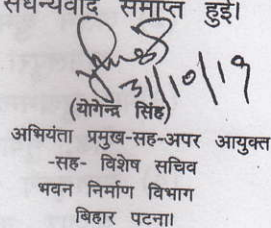 सधन्यवाद समाप्त हुई।
31/10/19
(योगेन्द्र सिंह)
अभियंता प्रमुख-सह-अपर आयुक्त
-सह- विशेष सचिव
भवन निर्माण विभाग
बिहार पटना।